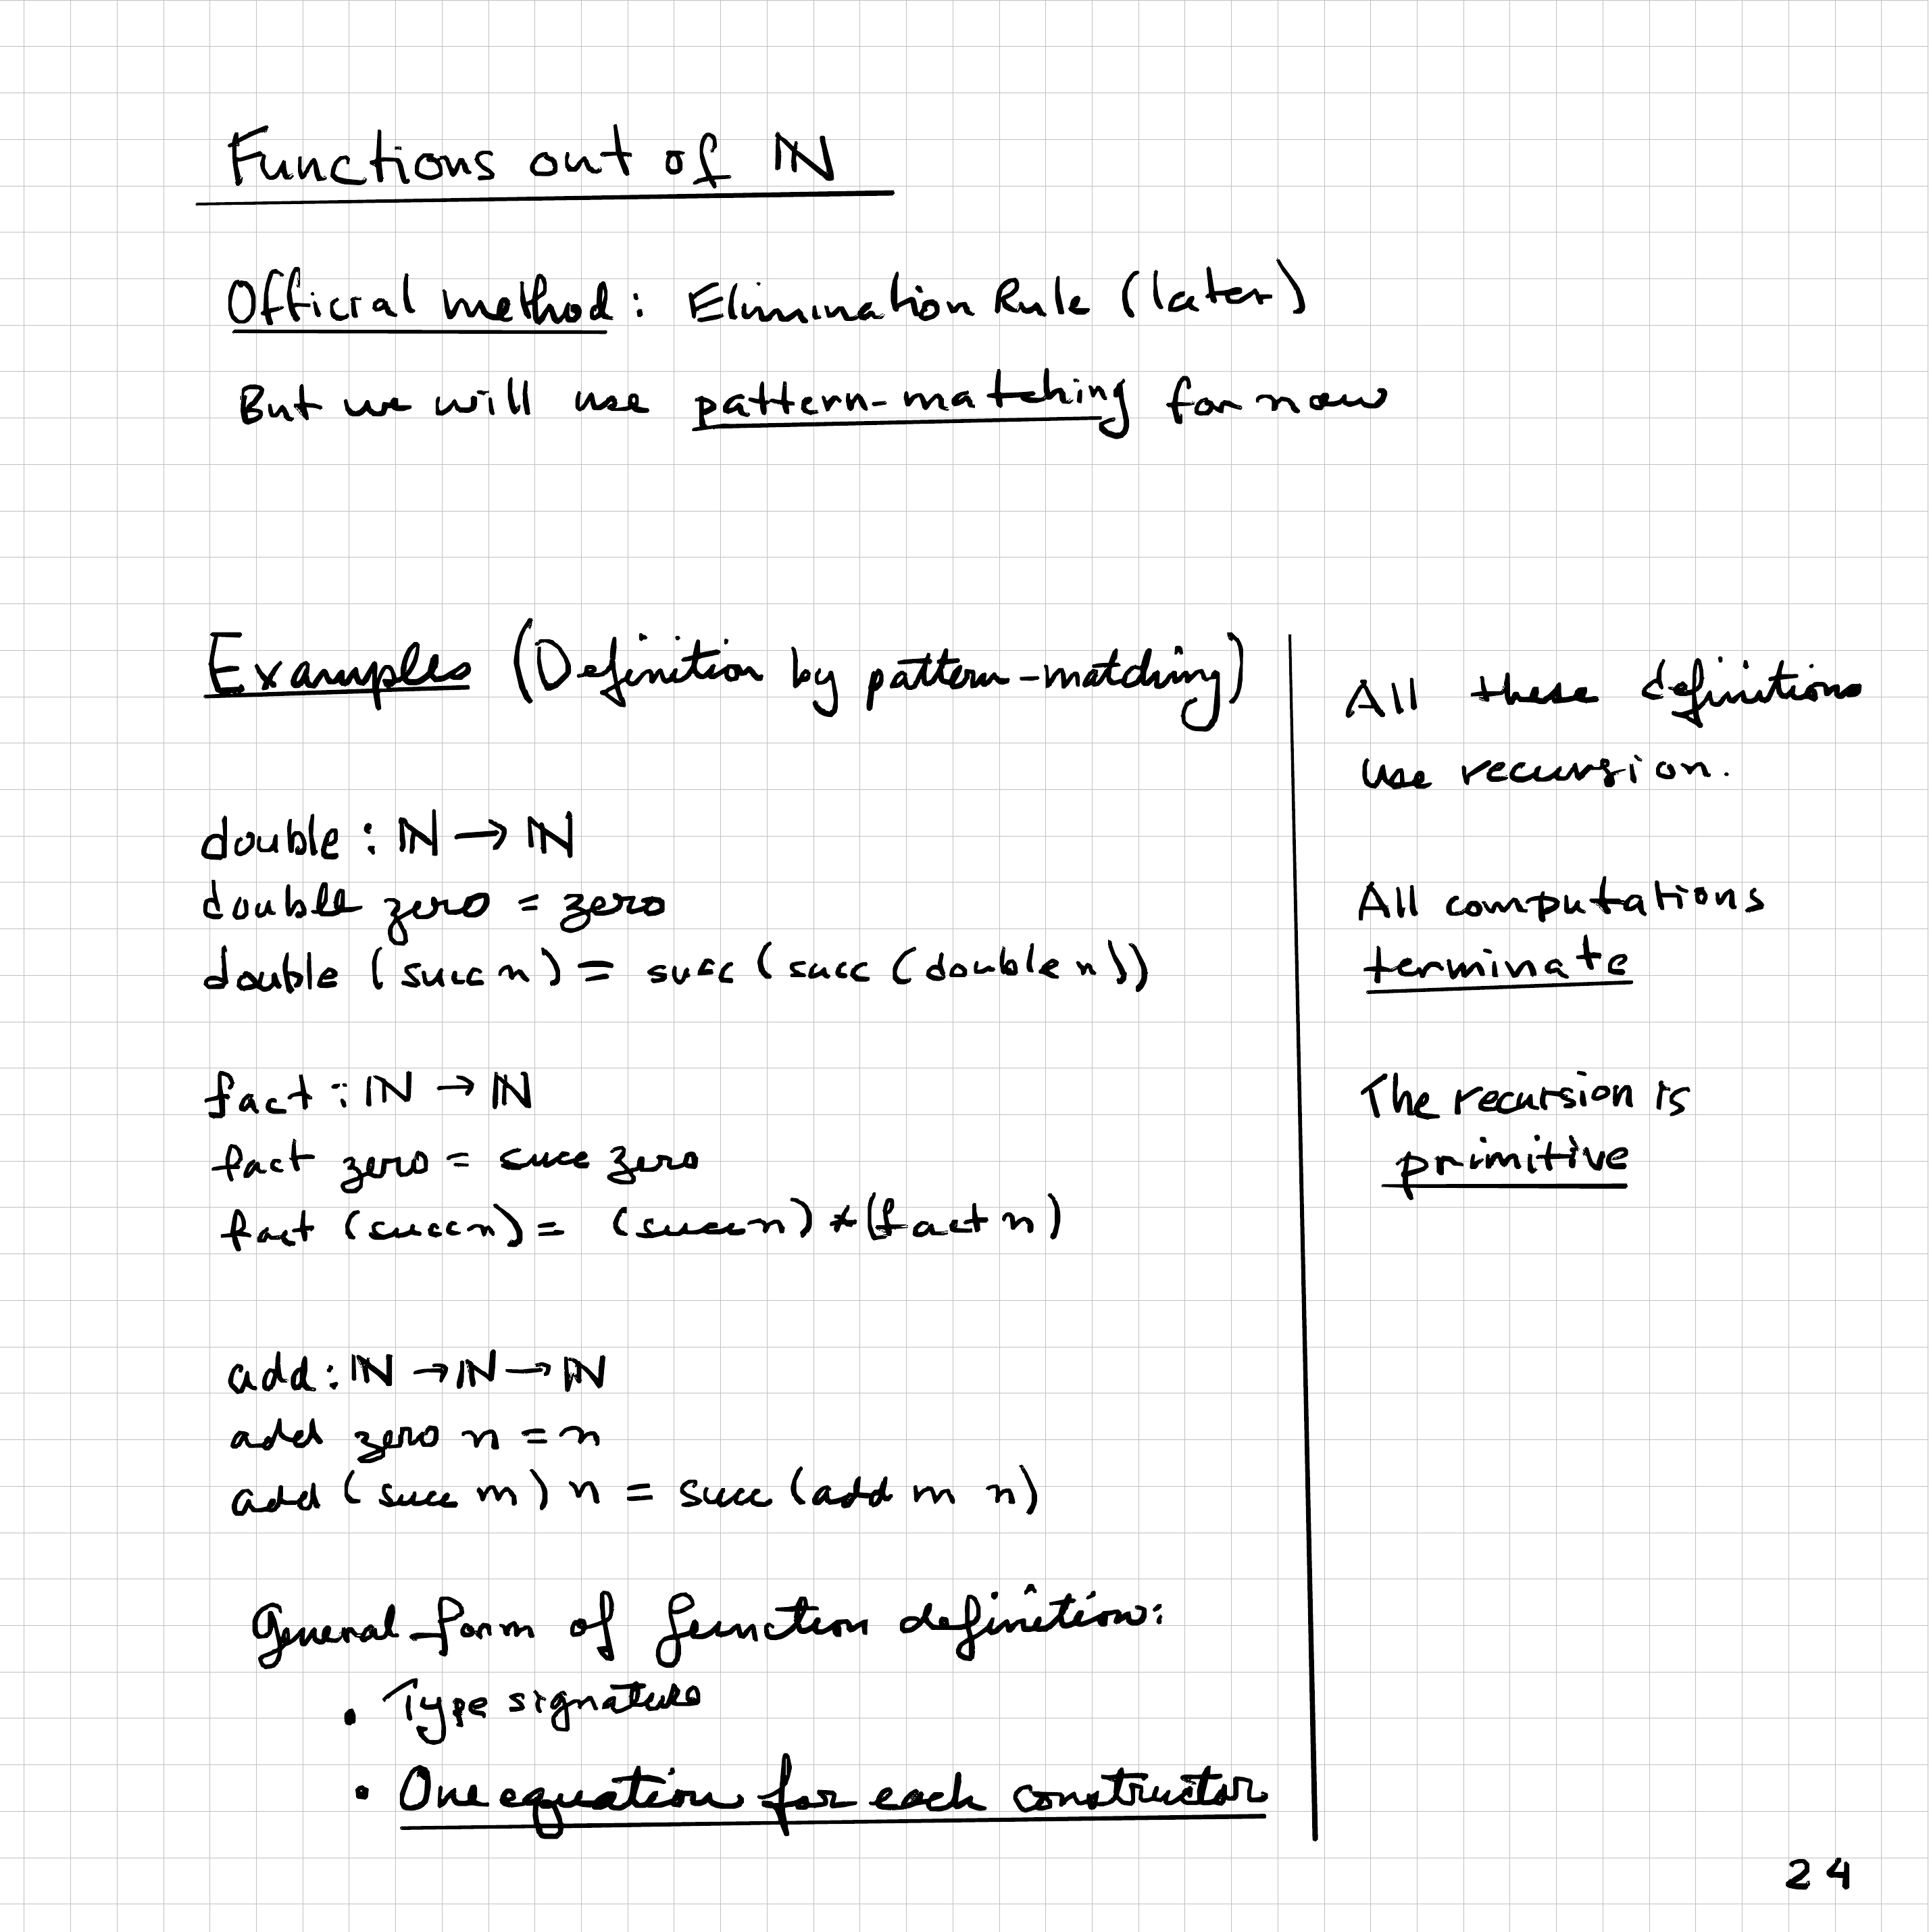 Functions out of ℕ
Official method: Elimination Rule (later)
But we will use pattern-matching for now
Examples (Definition by pattern-matching)
double : ℕ → ℕ
double zero = zero
double (succ n) = succ (succ (double n))
fact : ℕ → ℕ
fact zero = succ zero
fact (succ n) = (succ n) * (fact n)
add : ℕ → ℕ → ℕ
add zero n = n
add (succ m) n = succ (add m n)
General form of function definition:
• Type signature
• One equation for each constructor
All these definitions
use recursion.
All computations
terminate
The recursion is
primitive
24